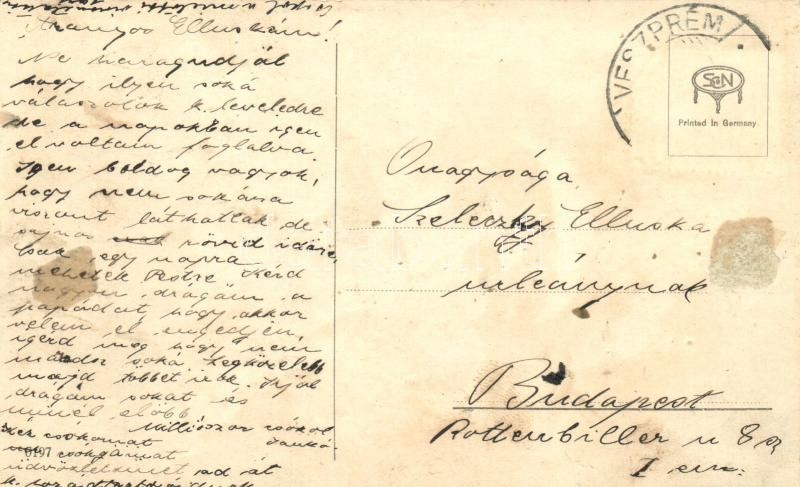 Aranyos Elluskám!
Ne haragudjál
hogy ilyen soká
válaszolok k. leveledre
de a napokban igen
el voltam foglalva.
Igen boldog vagyok,
hogy nem sokára
viszont láthatlak de
sajnos rövid időre
csak egy napra
mehetek Pestre. Kérd
nagyon drágám a
papádat, hogy akkor
velem el engedjen,
igérd meg hogy nem
soká legközelebb
majd többet irok. Irjál
drágám sokat és
minél előbb
Milliószor csókol
Jankó
kézcsókomat
üdvözletemet ad át
0197
VESZPRÉM
S&N
Printed in Germany.
Onagysága
Szeleczky Elluska
urleánynak
Budapest
Rottenbiller u 8
I em.